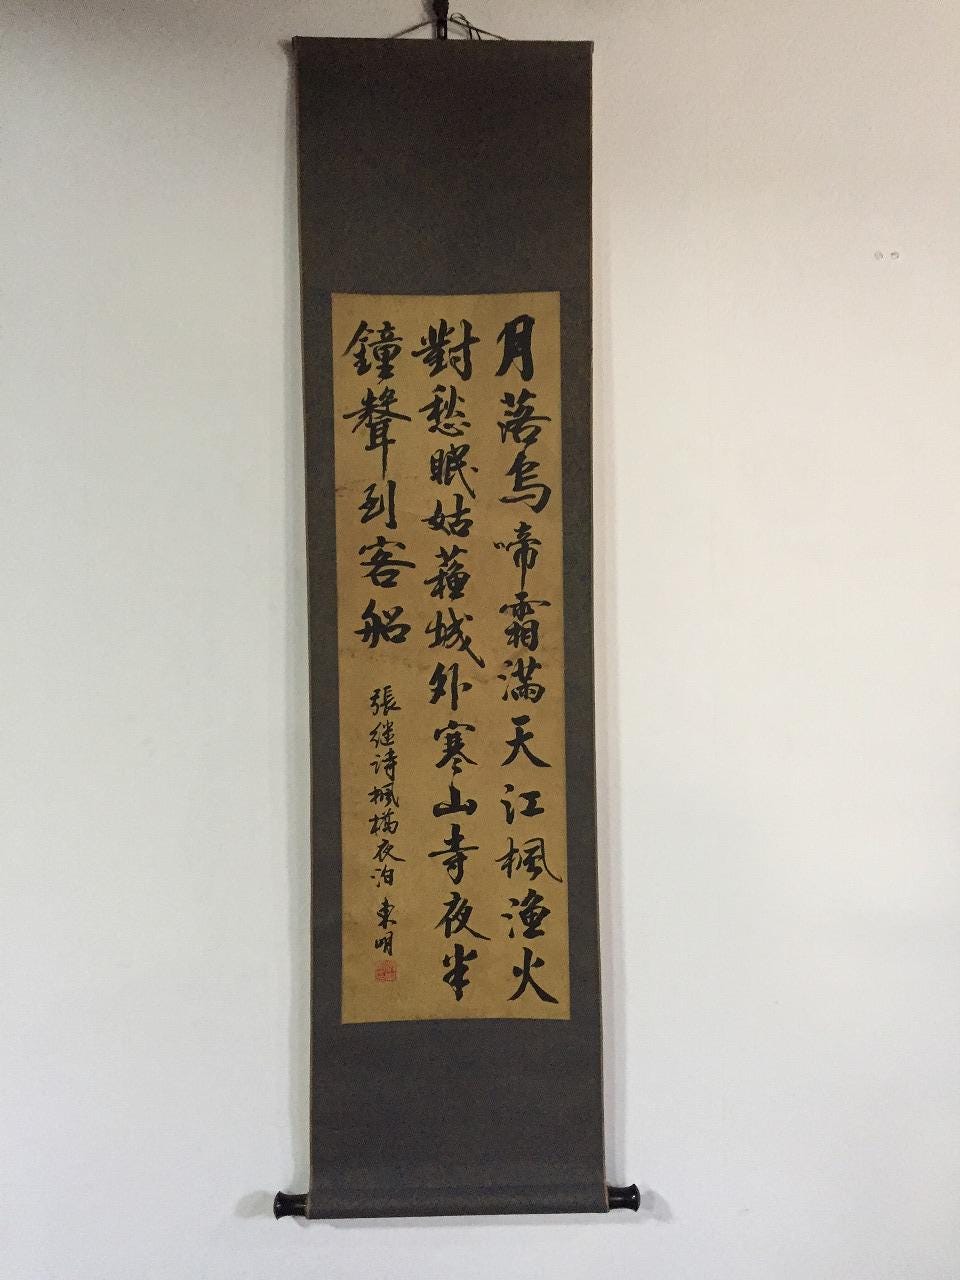 月落烏啼霜滿天江楓漁火
對愁眠姑蘓城外寒山寺夜半
鐘聲到客船
張继诗楓橋夜泊 東明